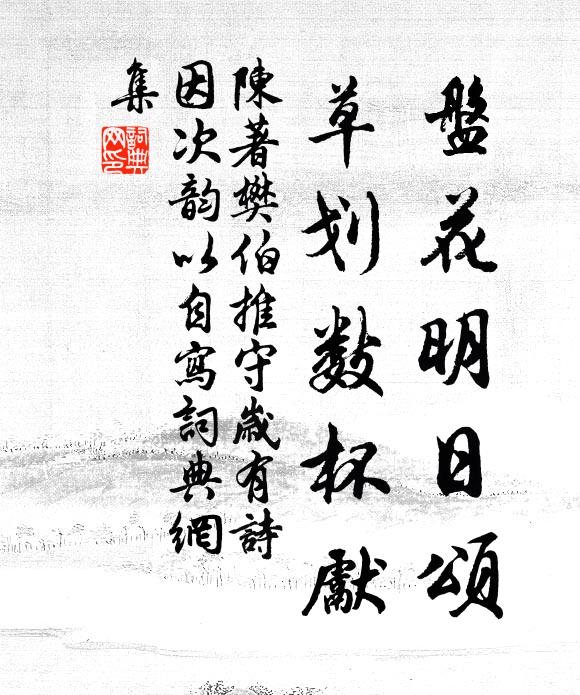 盤花明日頌
草划数杯獻
陳著樊伯推守歲有詩
因次韵以自寫詞典網
集
詞典
网印